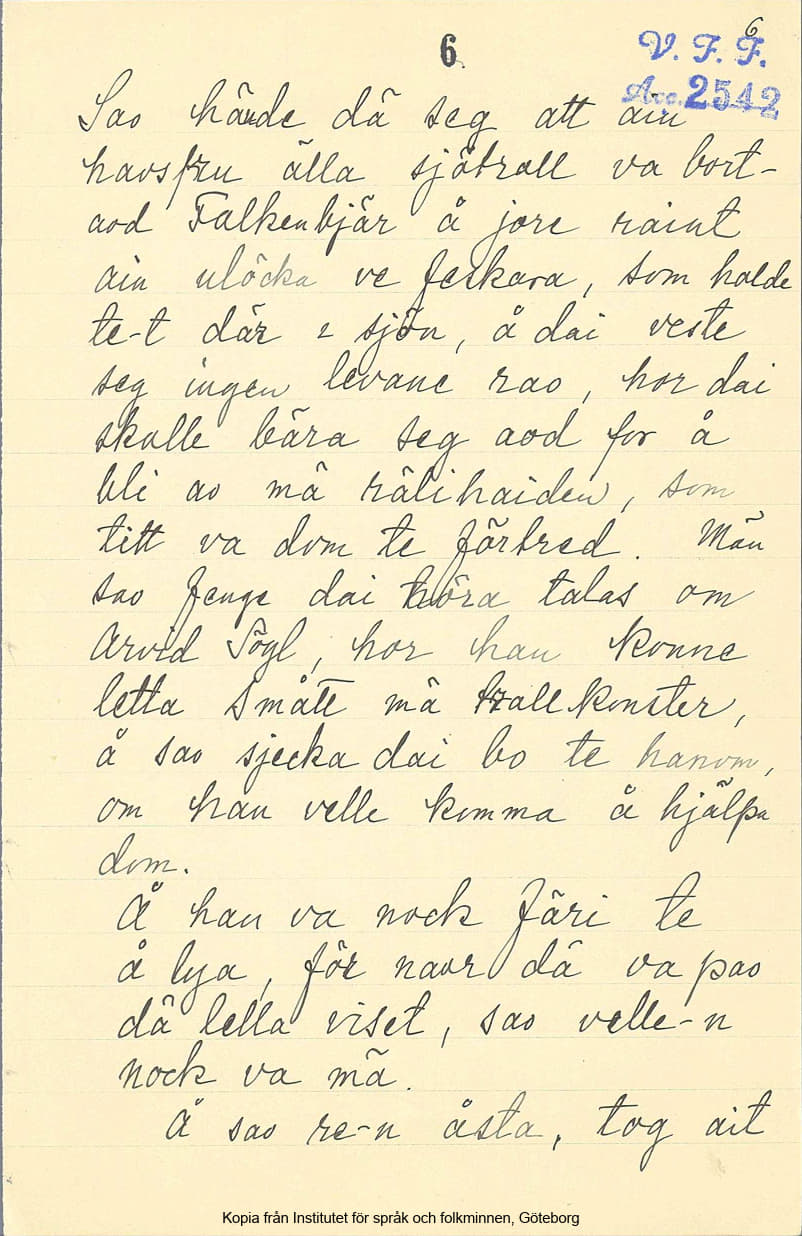 6
6.
V. F. F.
Acc. 2542
Sao hände dä seg att ain
havsfru älla sjötroll va bort-
aod Falkenbjär å jore raint
ain ulöcka ve feskara, som holde
te-t där i sjön, å dai veste
seg ingen levane rao, hor dai
skolle bära seg aod for å
bli ao mä rälihaiden, som
titt va dom te förtred. Män
sao fenge dai höra talas om
Arvid Sögl, hor han konne
letta smått mä trollkonster,
å sao sjecka dai bo te hanom,
om han velle komma å hjälpa
dom.
Å han va nock färi te
å lya, för naor dä va pao
dä lella viset, sao velle-n
nock va mä.
Å sao re-n åsta, tog ait
Kopia från Institutet för språk och folkminnen, Göteborg